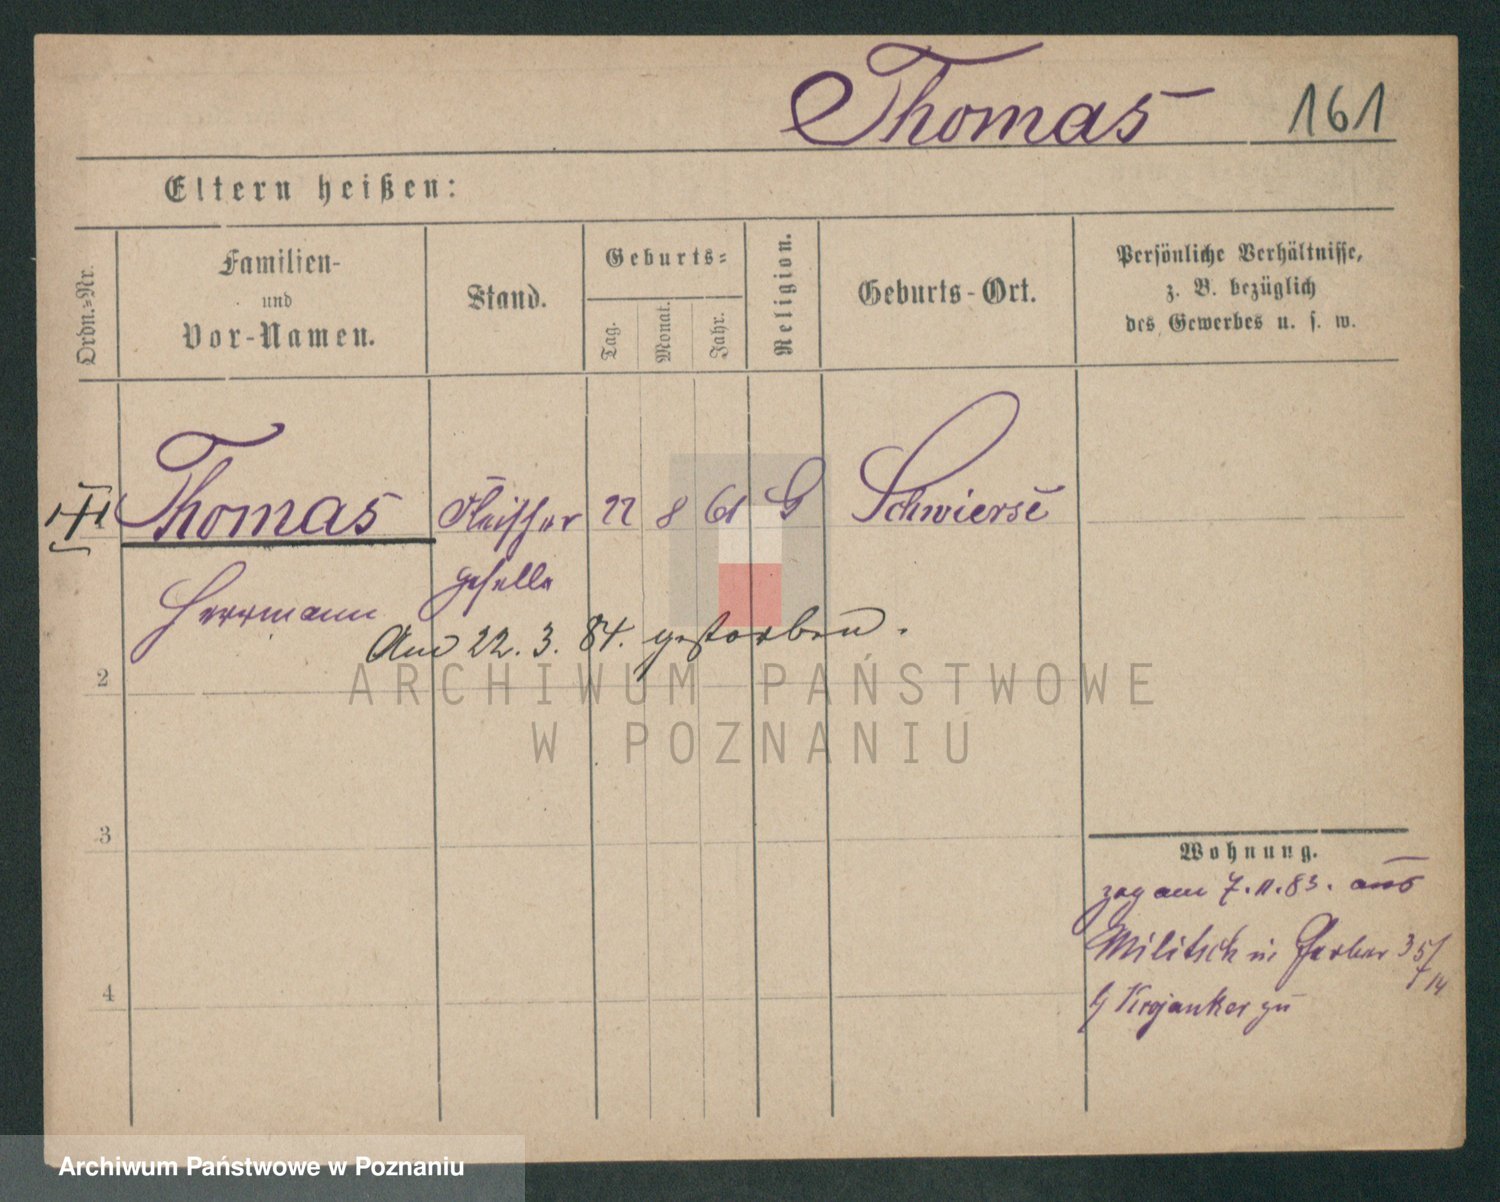 Thomas 161
Eltern heißen:
Ordn.-Nr.
Familien-
und
Vor-Namen.
Stand.
Geburts-
Tag.
Monat.
Jahr.
Religion.
Geburts-Ort.
Persönliche Verhältnisse,
z. B. bezüglich
des Gewerbes u. s. w.
Thomas Fleischer 22 8 61 Schwierse
Herrmann geselle
Am 22. 3. 84. gestorben.
2
ARCHIWUM PAŃSTWOWE
W POZNANIU
3
Wohnung.
zog am 7. 11. 83. aus
Militsch in Gerber 35/
4
14
b/ Krojanker zu
Archiwum Państwowe w Poznaniu